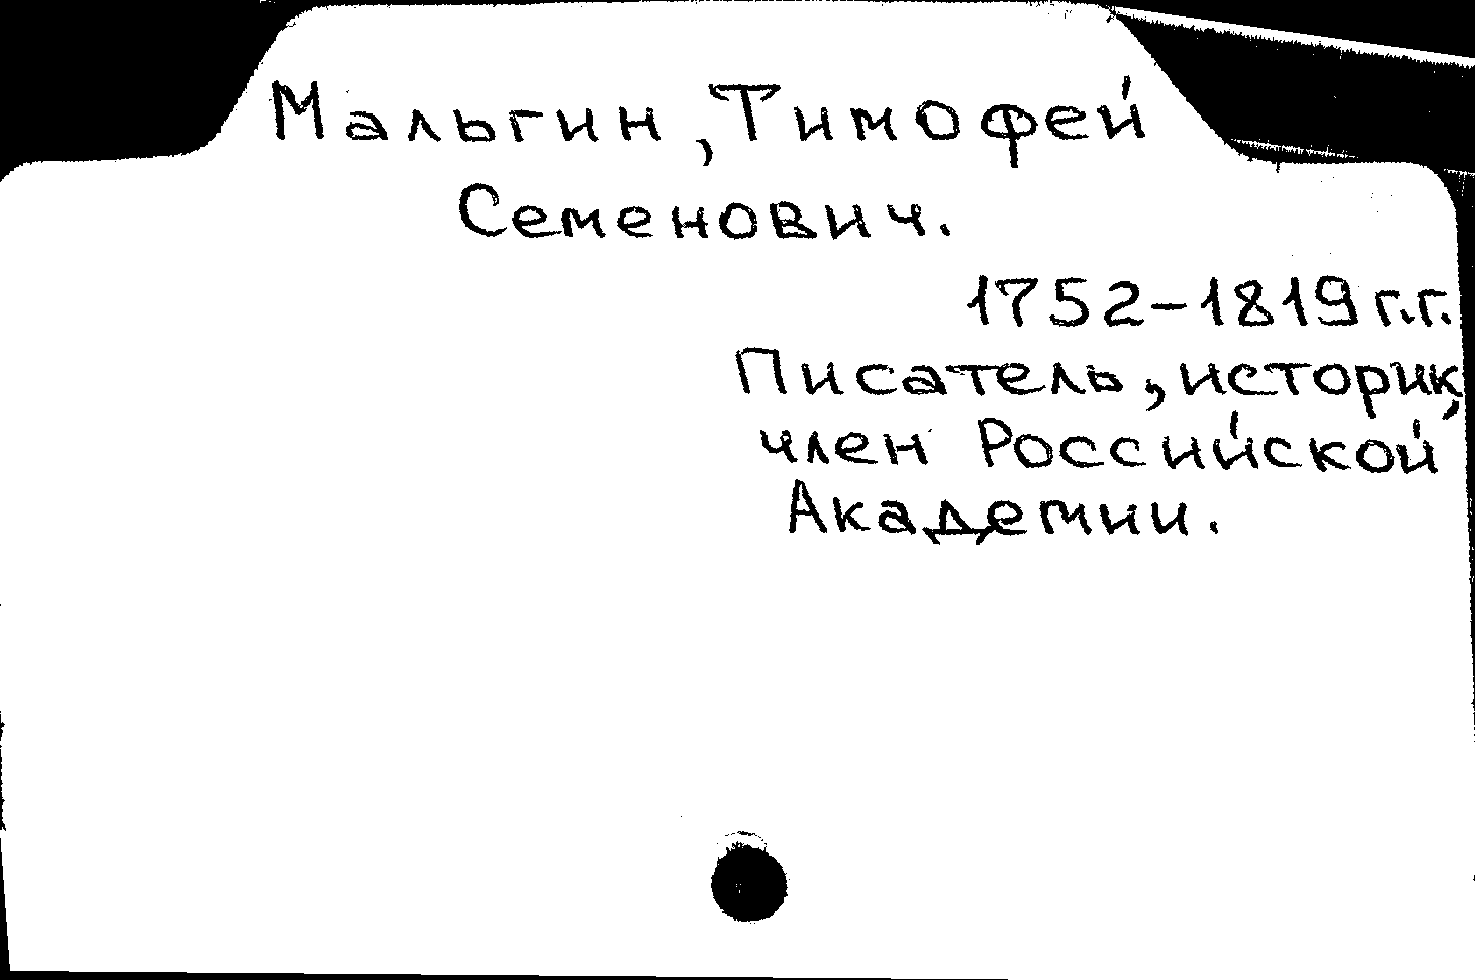 Мальгин, Тимофей
Семенович.
1752-1819 г.г.
Писатель, историк,
член Российской
Академии.